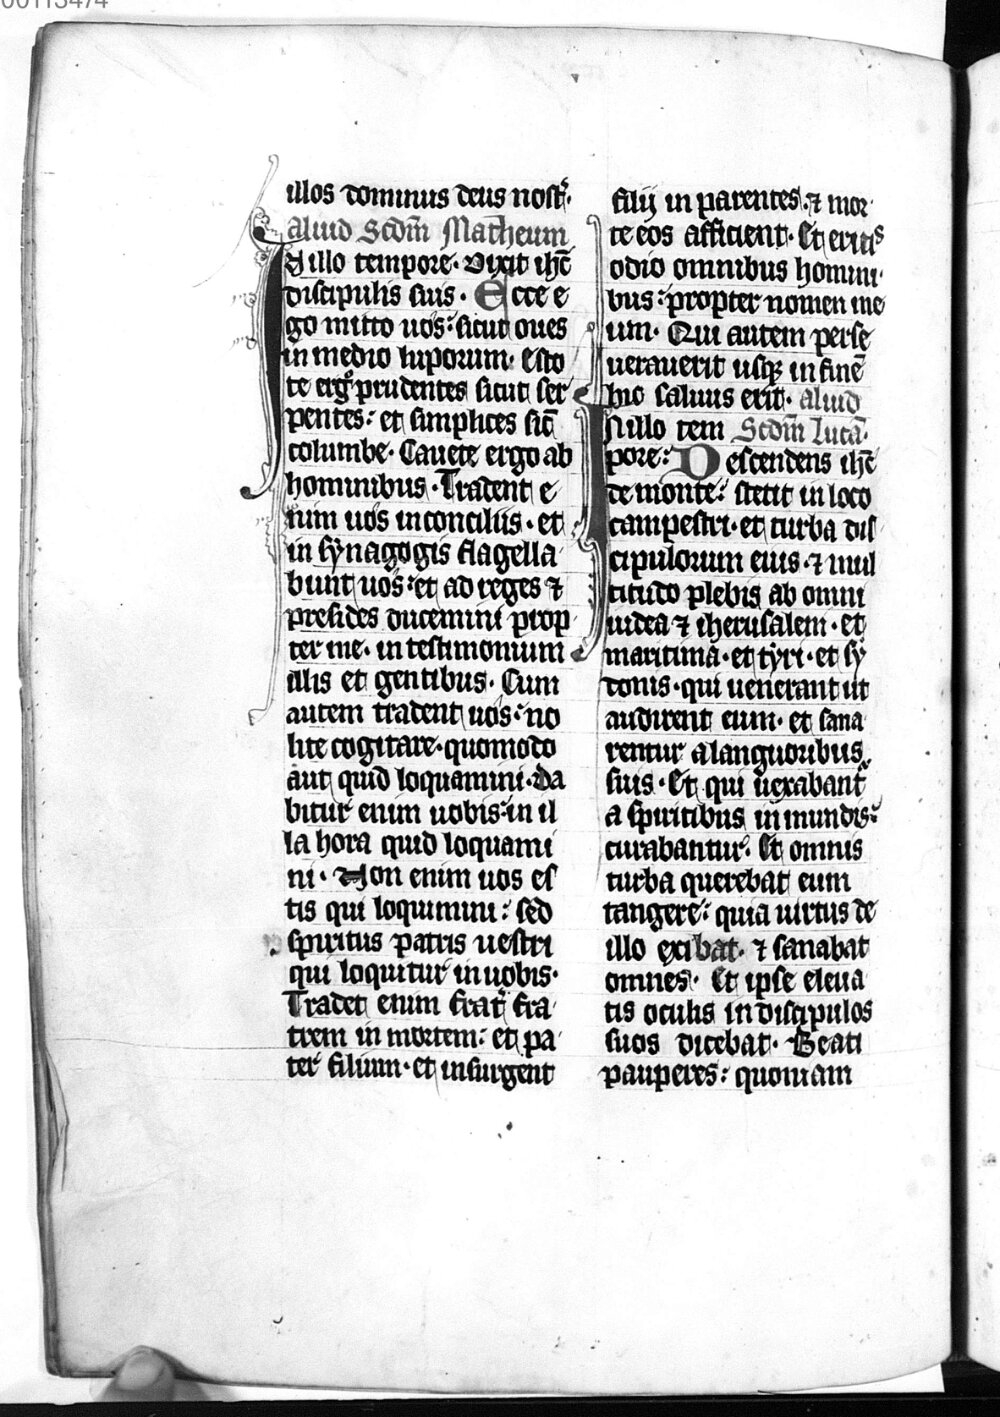 00113474
illos dominus deus nost᷑·
aliud Scd̄m Matheum
In illo tempore· Dixit ihc̄
discipulis suis· Ecce e
go mitto uos: sicut oues
in medio luporum· Esto
te ergo prudentes sicut ser
pentes: et simplices sic̄
columbe· Cauete ergo ab
hominibus· Tradent e
nim uos in conciliis· et
in synagogis flagella
bunt uos: et ad reges ⁊
presides ducemini prop
ter me· in testimonium
illis et gentibus· Cum
autem tradent uos: no
lite cogitare· quomodo
aut quid loquamini· Da
bitur enim uobis: in il
la hora quid loquami
ni· Non enim uos es
tis qui loquimini: sed
spiritus patris uestri
qui loquitur in uobis·
Tradet enim frat᷑ fra
trem in mortem: et pa
ter filium· et insurgent
filij in parentes· ⁊ mor
te eos afficient· Et eritis
odio omnibus homini
bus: propter nomen me
um· Qui autem perse
uerauerit usqꝫ in finē
hic saluus erit· aliud
In illo tem Scd̄m Lucā·
pore: Descendens ihc̄
de monte: stetit in loco
campestri· et turba dis
cipulorum eius· ⁊ mul
titudo plebis ab omni
iudea ⁊ iherusalem· et
maritima· et tyri· et sy
donis· qui uenerant ut
audirent eum· et sana
rentur a languoribus
suis· Et qui uexabant᷑
a spiritibus inmundis:
curabantur· Et omnis
turba querebat eum
tangere: quia uirtus de
illo exibat· ⁊ sanabat
omnes· Et ipse eleua
tis oculis in discipulos
suos dicebat· Beati
pauperes: quoniam